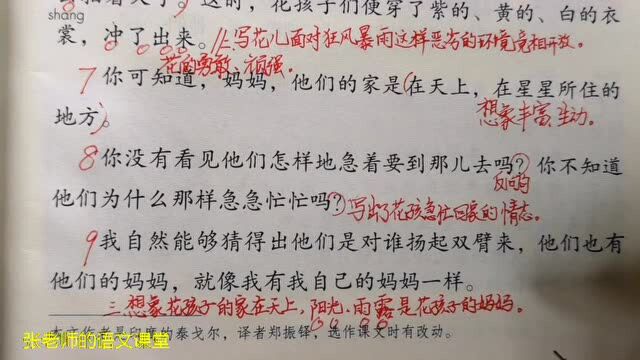 shang
孩子们便穿了紫的、黄的、白的衣
裳,冲了出来。写花儿面对狂风暴雨这样恶劣的环境竞相开放。
花的勇敢、顽强。
7你可知道,妈妈,他们的家是在天上,在星星所住的
地方。
想象丰富,生动。
8你没有看见他们怎样地急着要到那儿去吗?你不知道
反问句
他们为什么那样急急忙忙吗?写出了花孩急忙回家的情态。
9我自然能够猜得出他们是对谁扬起双臂来,他们也有
他们的妈妈,就像我有我自己的妈妈一样。
三.想象花孩子的家在天上,阳光、雨露是花孩子的妈妈。
本文作者是印度的泰戈尔,译者郑振铎,选作课文时有改动。
张老师的语文课堂